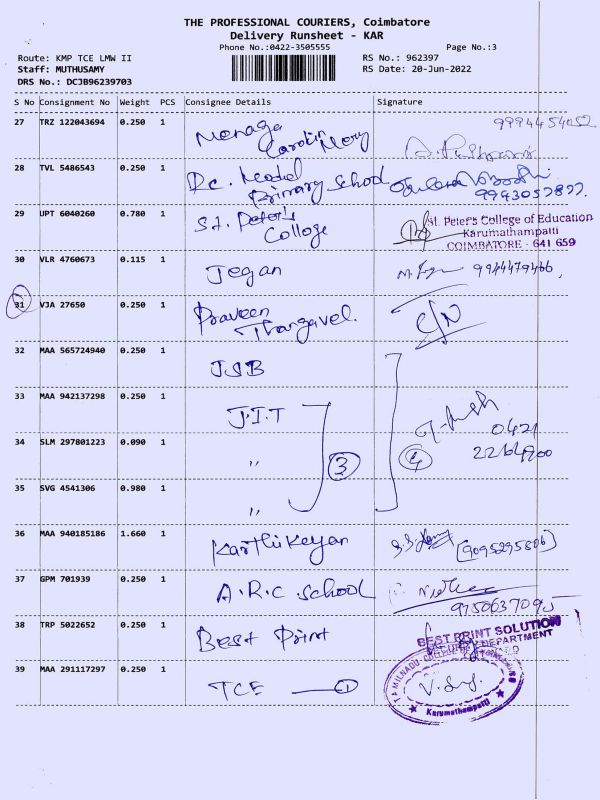 THE PROFESSIONAL COURIERS, Coimbatore
Delivery Runsheet - KAR
Phone No.:0422-3505555
Page No.:3
Route: KMP TCE LMW II
RS No.: 962397
Staff: MUTHUSAMY
RS Date: 20-Jun-2022
DRS No.: DCJB96239703
S No Consignment No Weight PCS Consignee Details Signature
27 TRZ 122043694 0.250 1 Menaga 9994454052
Carolin Mery
28 TVL 5486543 0.250 1 R.C. Model
Primary School 9943057877.
29 UPT 6040260 0.780 1 St. Peter's St. Peter's College of Education
College Karumathampatti
COIMBATORE - 641 659
30 VLR 4760673 0.115 1 Jegan 9944479466,
31 VJA 27650 0.250 1 Praveen C/N
Thangavel.
32 MAA 565724940 0.250 1 JSB
33 MAA 942137298 0.250 1 J.I.T
0421
34 SLM 297801223 0.090 1 " 3 4
35 SVG 4541306 0.980 1 "
36 MAA 940185186 1.660 1 Karthikeyan [9095295806]
37 GPM 701939 0.250 1 A.R.C School
38 TRP 5022652 0.250 1 Best Print BEST PRINT SOLUTION
39 MAA 291117297 0.250 1 TCE 1 TAMILNADU
Karumathampatti